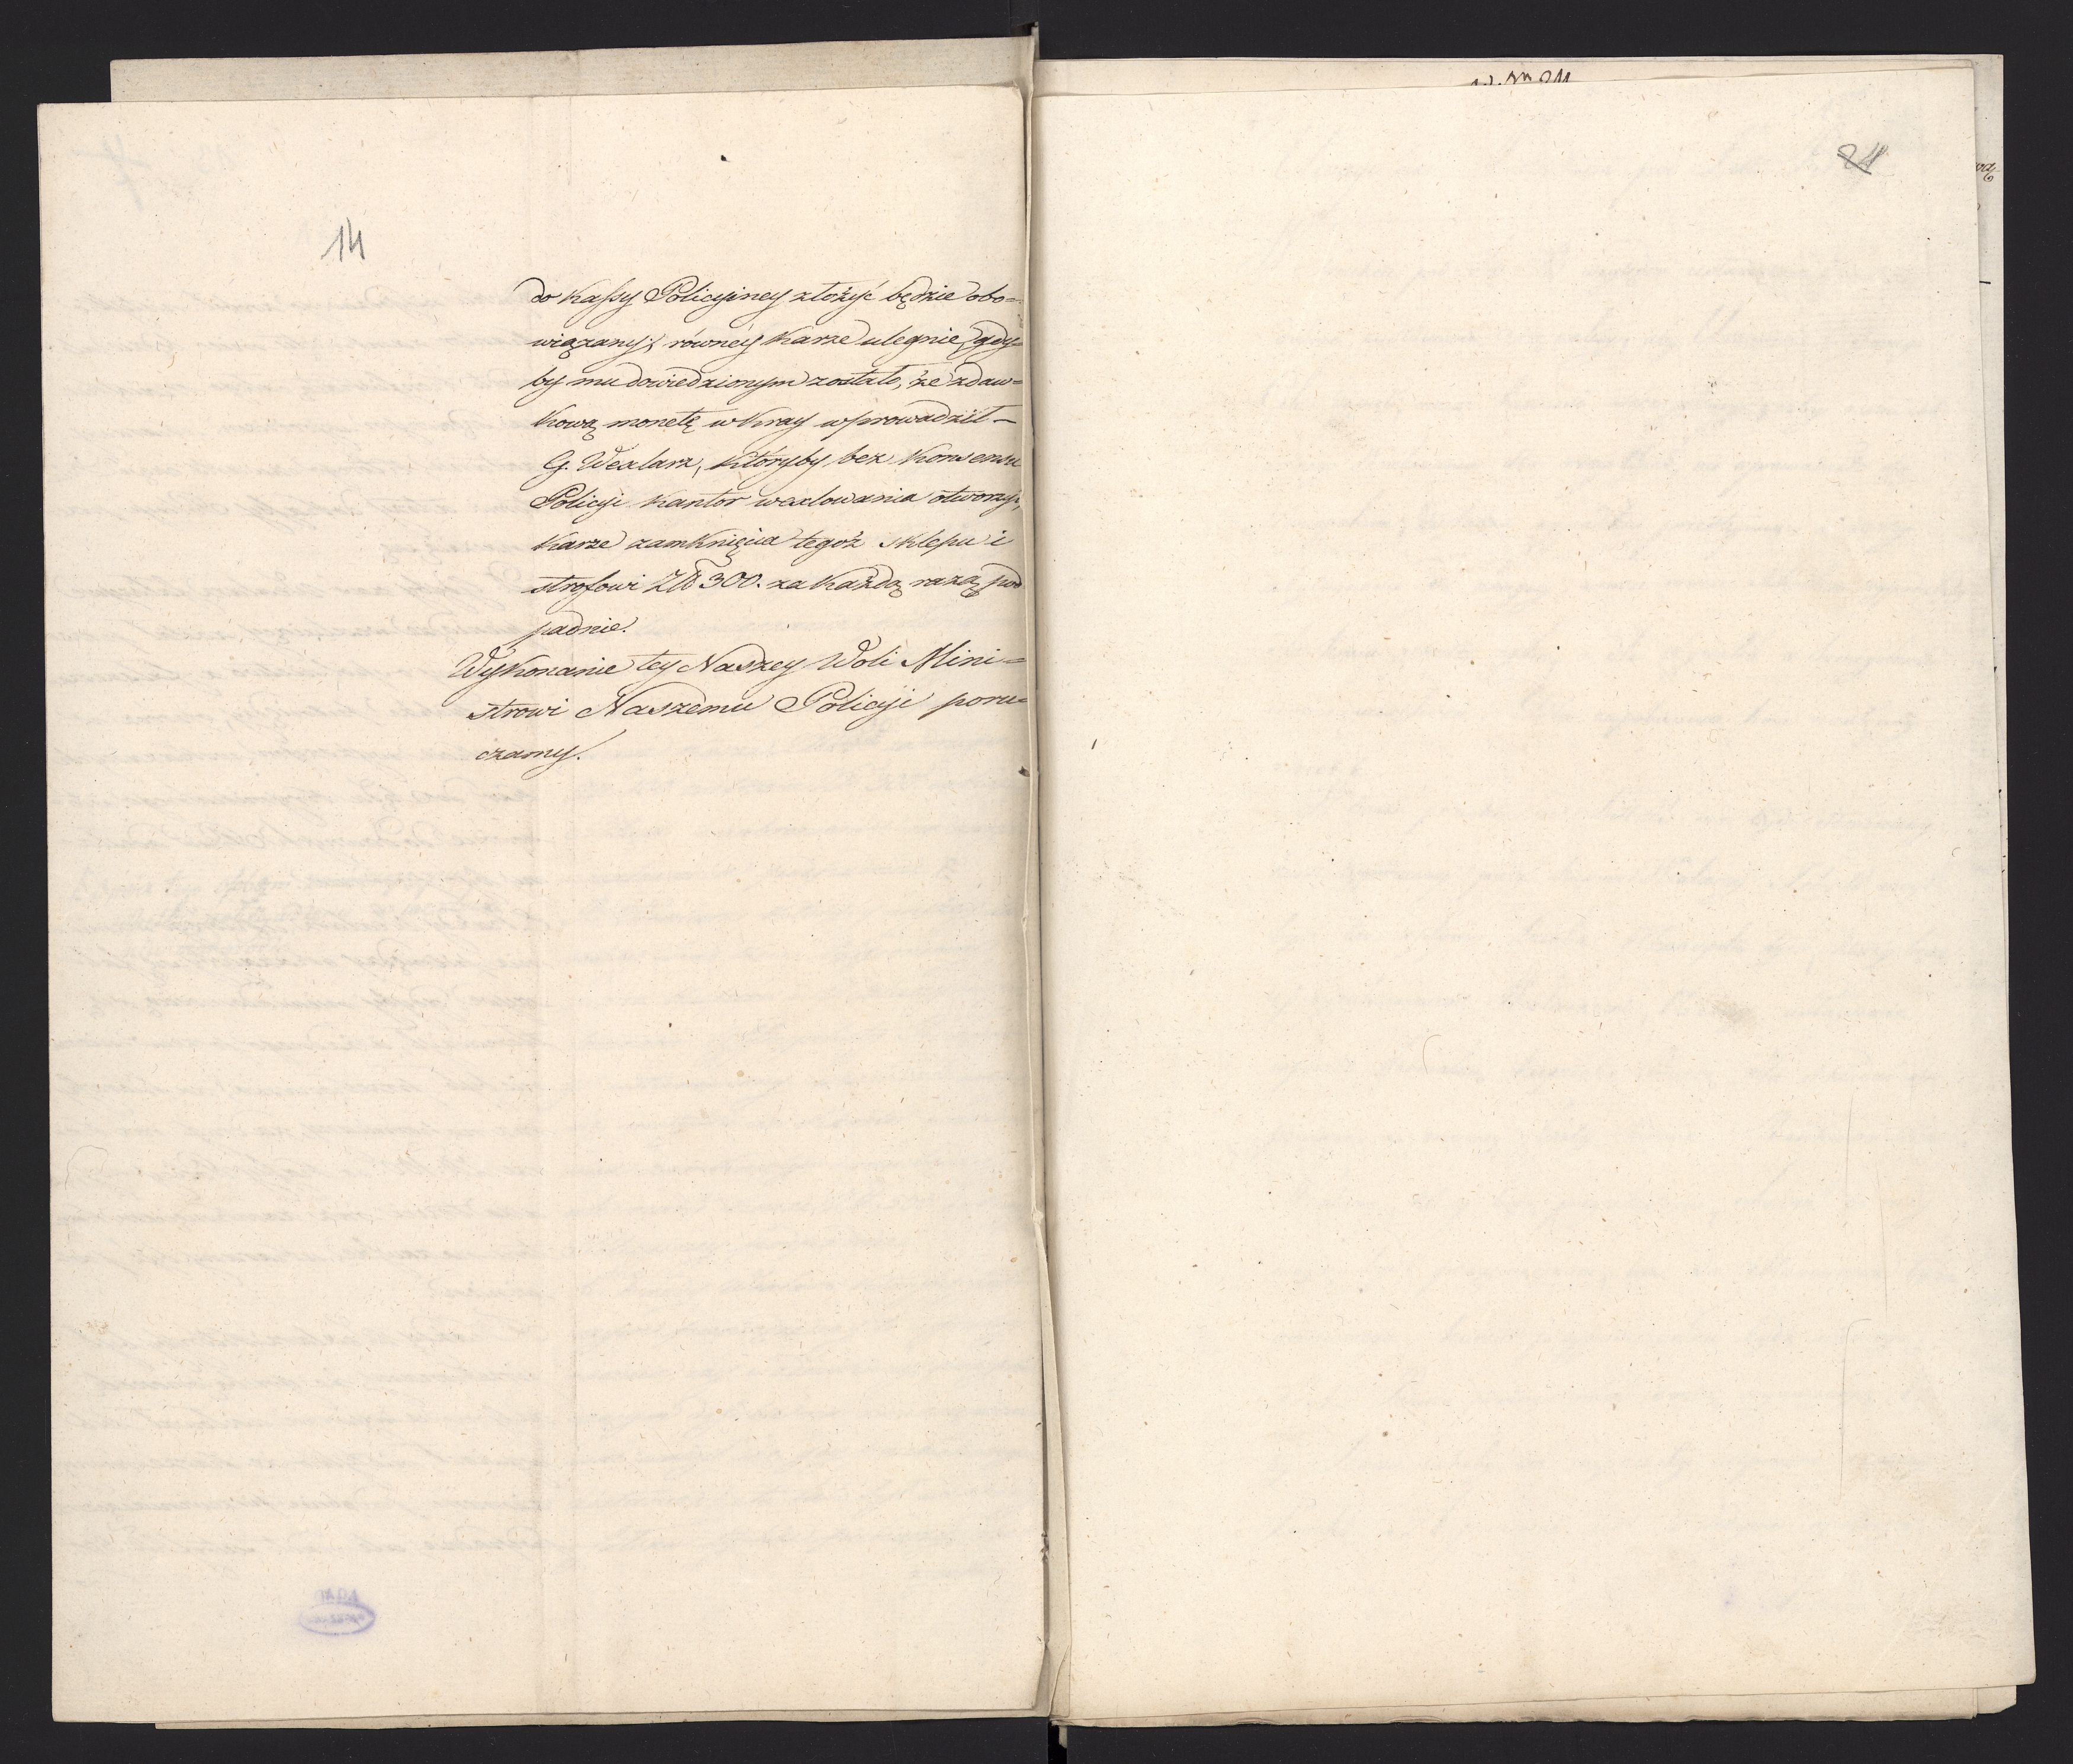 14
do Kassy Policyiney złożyć będzie obo=
wiązany; równéy karze ulegnie, gdy=
by mu dowiedzionym zostało, że zdaw=
kową monetę w Kray wprowadził –
G. Wexlarz, któryby bez Konsensu
Policyi Kantor wexlowania otworzył,
karze zamknięcia tegoż sklepu i
strofowi Zł 300. za każdą razą pod
padnie.
Wykonanie tey Naszey Woli Mini=
strowi Naszemu Policyi poru=
czamy.
24